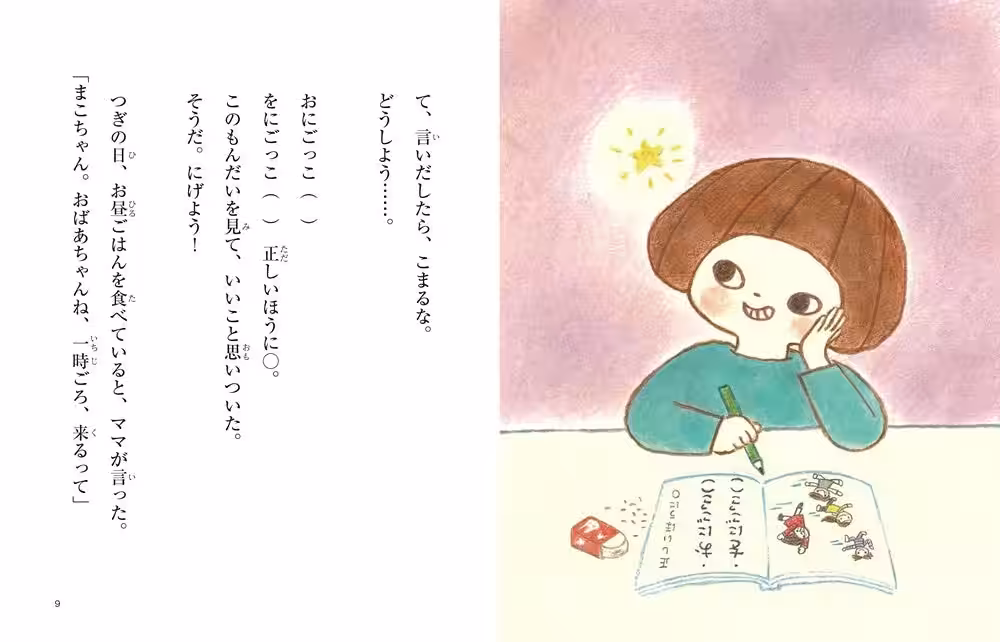 て、言いだしたら、こまるな。
どうしよう……。
おにごっこ（　）
をにごっこ（　）　正しいほうに〇。
このもんだいを見て、いいこと思いついた。
そうだ。にげよう！
つぎの日、お昼ごはんを食べていると、ママが言った。
「まこちゃん。おばあちゃんね、一時ごろ、来るって」
9
・をにごっこ（　）
・おにごっこ（　）
正しいほうに〇